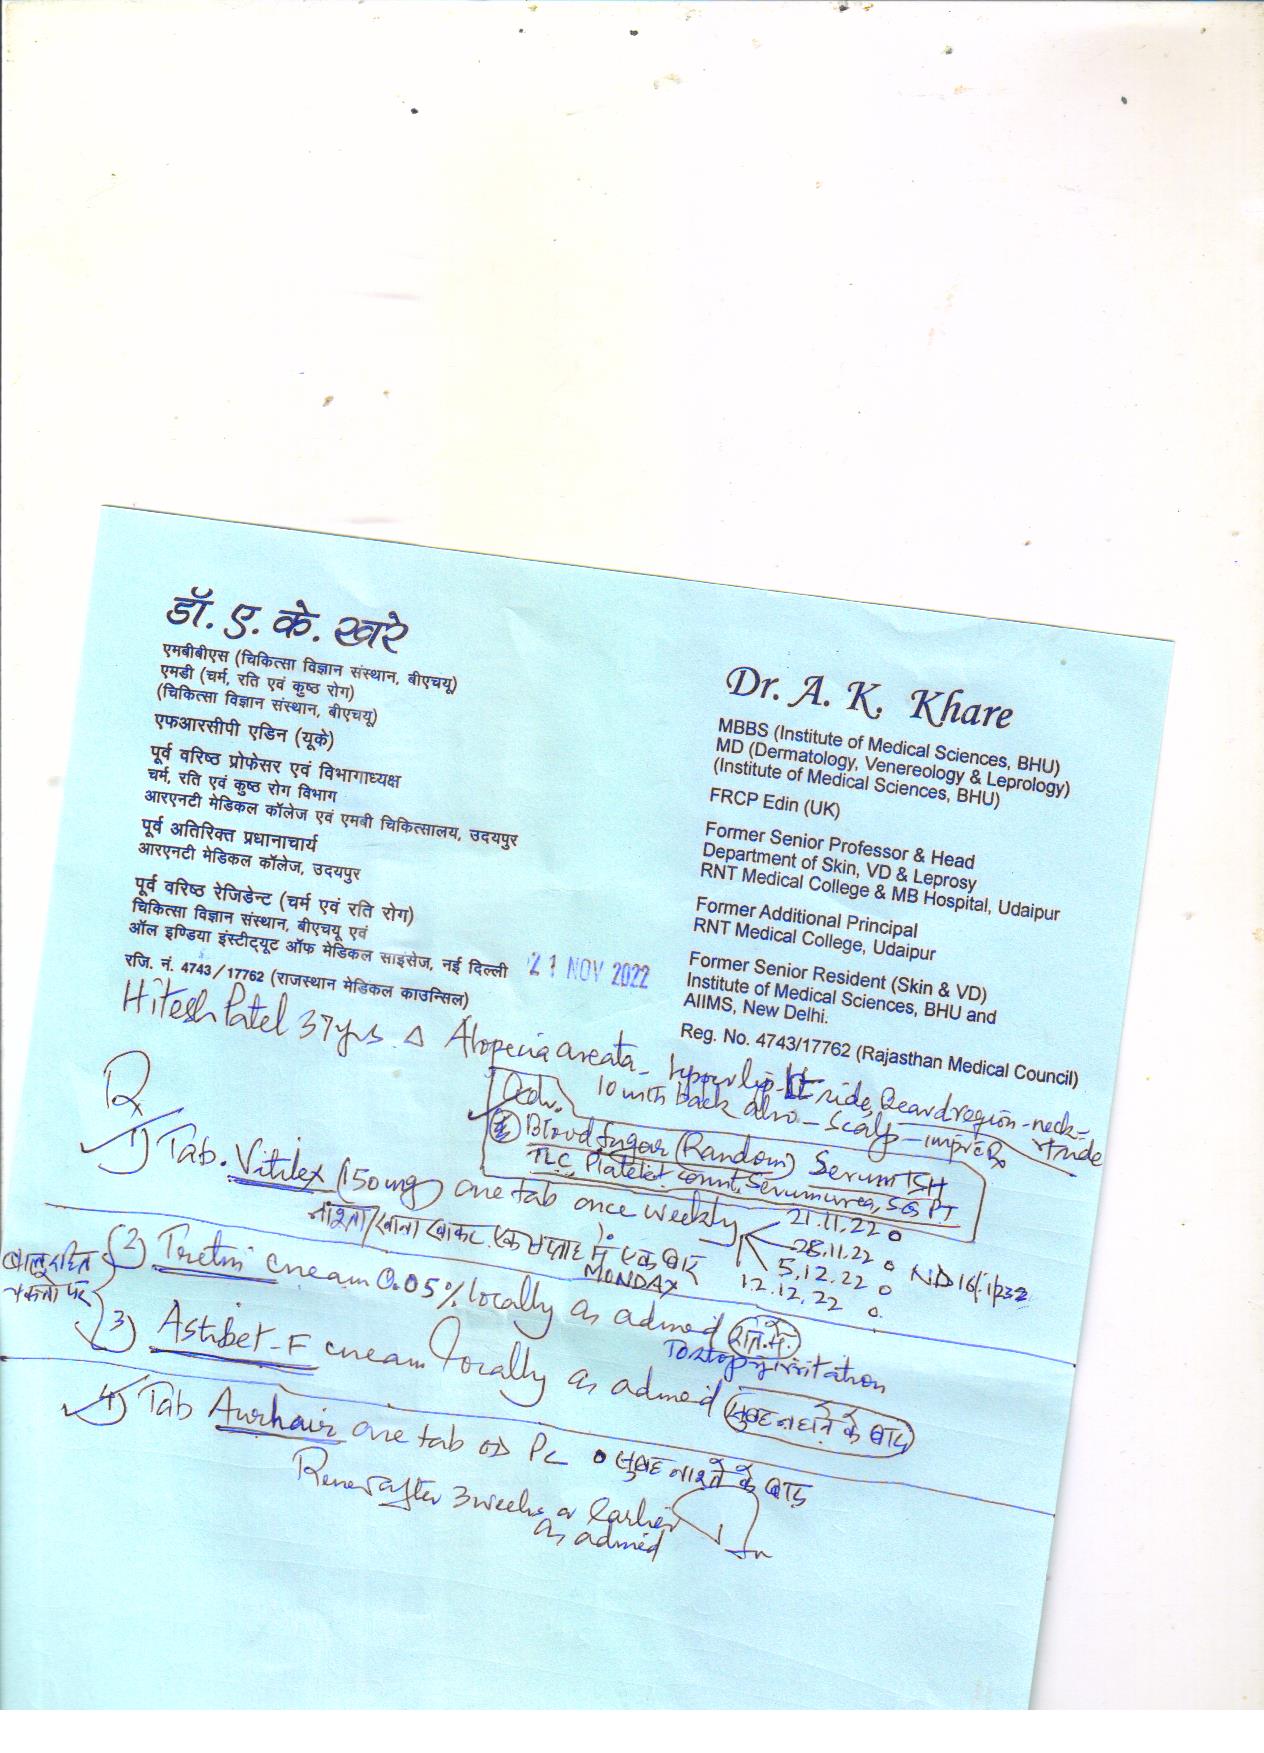 डॉ. ए. के. खरे
एमबीबीएस (चिकित्सा विज्ञान संस्थान, बीएचयू)
एमडी (चर्म, रति एवं कुष्ठ रोग)
(चिकित्सा विज्ञान संस्थान, बीएचयू)
एफआरसीपी एडिन (यूके)
पूर्व वरिष्ठ प्रोफेसर एवं विभागाध्यक्ष
चर्म, रति एवं कुष्ठ रोग विभाग
आरएनटी मेडिकल कॉलेज एवं एमबी चिकित्सालय, उदयपुर
पूर्व अतिरिक्त प्रधानाचार्य
आरएनटी मेडिकल कॉलेज, उदयपुर
पूर्व वरिष्ठ रेजिडेन्ट (चर्म एवं रति रोग)
चिकित्सा विज्ञान संस्थान, बीएचयू एवं
ऑल इण्डिया इंस्टीट्यूट ऑफ मेडिकल साइसेज, नई दिल्ली
रजि. नं. 4743/17762 (राजस्थान मेडिकल काउन्सिल)
Dr. A. K. Khare
MBBS (Institute of Medical Sciences, BHU)
MD (Dermatology, Venereology & Leprology)
(Institute of Medical Sciences, BHU)
FRCP Edin (UK)
Former Senior Professor & Head
Department of Skin, VD & Leprosy
RNT Medical College & MB Hospital, Udaipur
Former Additional Principal
RNT Medical College, Udaipur
Former Senior Resident (Skin & VD)
Institute of Medical Sciences, BHU and
AIIMS, New Delhi.
Reg. No. 4743/17762 (Rajasthan Medical Council)
21 NOV 2022
Hitesh Patel 37yrs. Δ Alopecia areata - upper lip - side, Beard region - neck -
back also - scalp -
Adv.
Blood Sugar (Random) Serum TSH
TLC, Platelet count, Serum urea, SGPT
Rx
1) Tab. Vitilex (150mg) one tab once weekly
21.11.22
28.11.22
5.12.22
12.12.22
नाश्ता/खाना खाकर एक सप्ताह में एक बार
MONDAY
2) Tretin cream 0.05% locally as advised
To stop if irritation
3) Astibet-F cream locally as advised (सुबह नहाने के बाद)
4) Tab Aurhair one tab OD PC सुबह नाश्ते के बाद
after 3 weeks or earlier
as advised